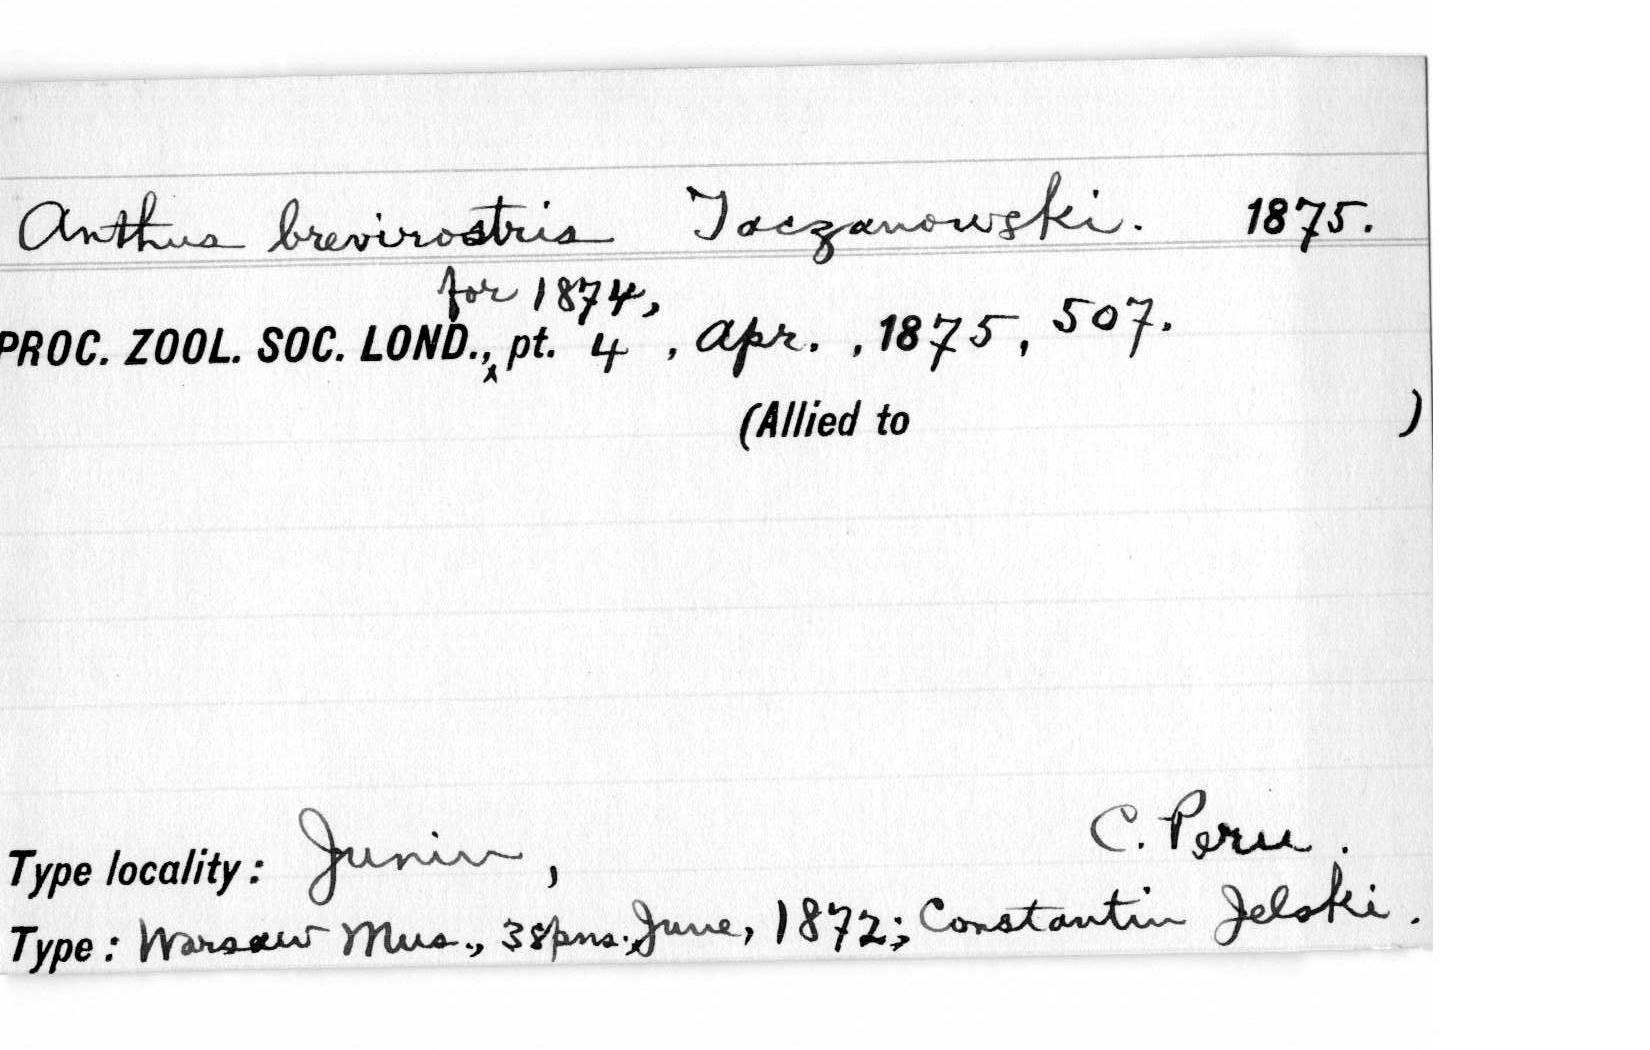 Anthus brevirostris Taczanowski. 1875.
for 1874,
PROC. ZOOL. SOC. LOND., pt. 4, Apr., 1875, 507.
(Allied to )
Type locality: Junin, C. Peru.
Type: Warsaw Mus., 3 spns. June, 1872; Constantin Jelski.